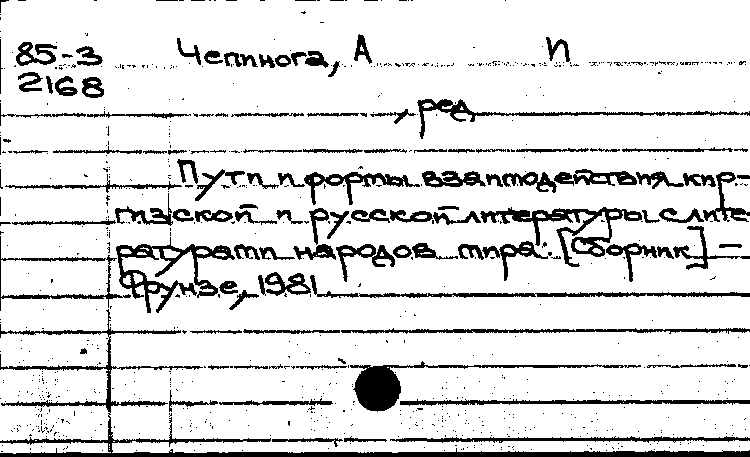 85-3 Чепинога, А П
2168
, ред
Пути и формы взаимодействия кир-
гизской и русской литературы с лите
ратурами народов мира: [Сборник] –
Фрунзе, 1981.